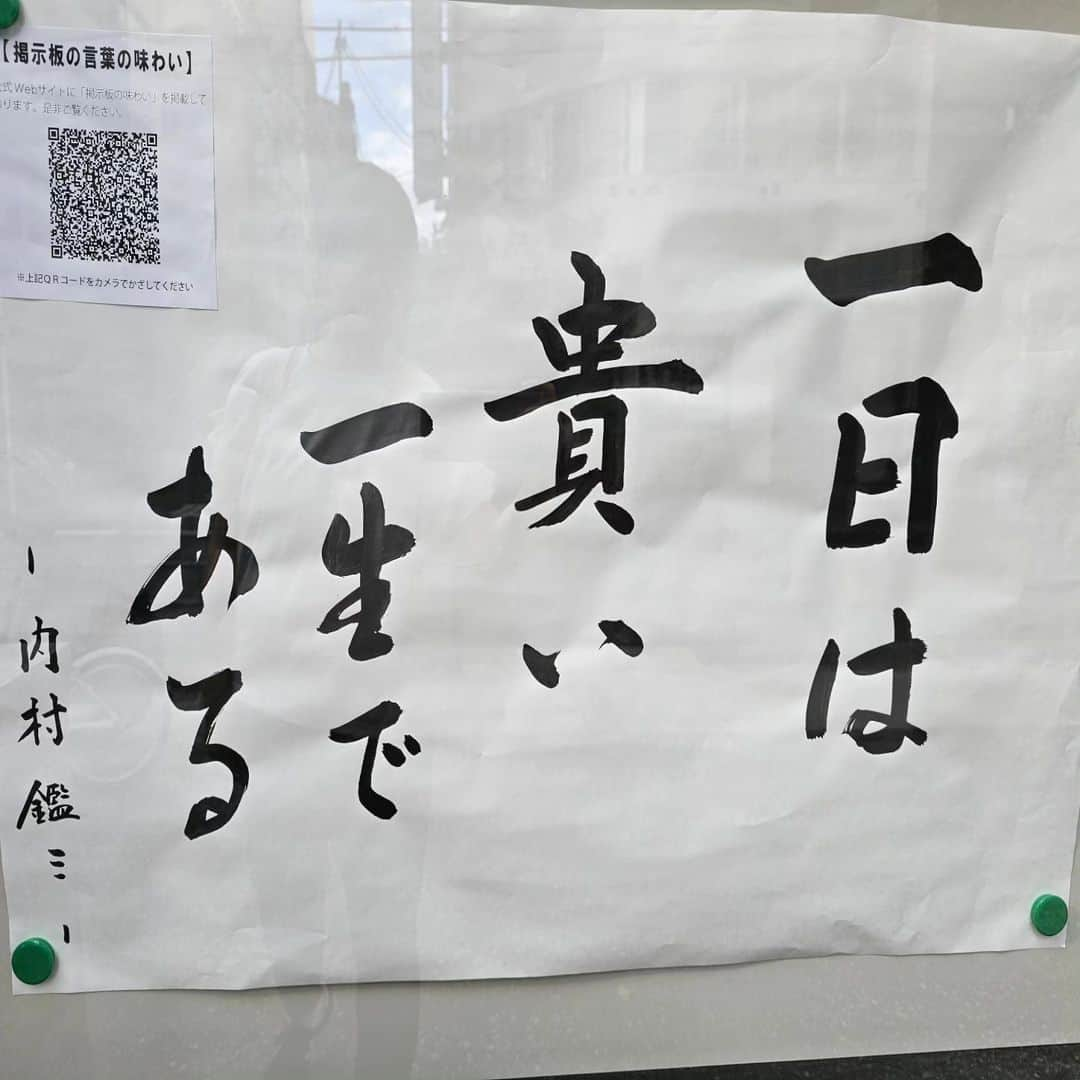 一日は
貴い
一生で
ある
-内村鑑三-
【掲示板の言葉の味わい】
式Webサイトに「掲示板の味わい」を掲載して
ります。是非ご覧ください。
※上記QRコードをカメラでかざしてください